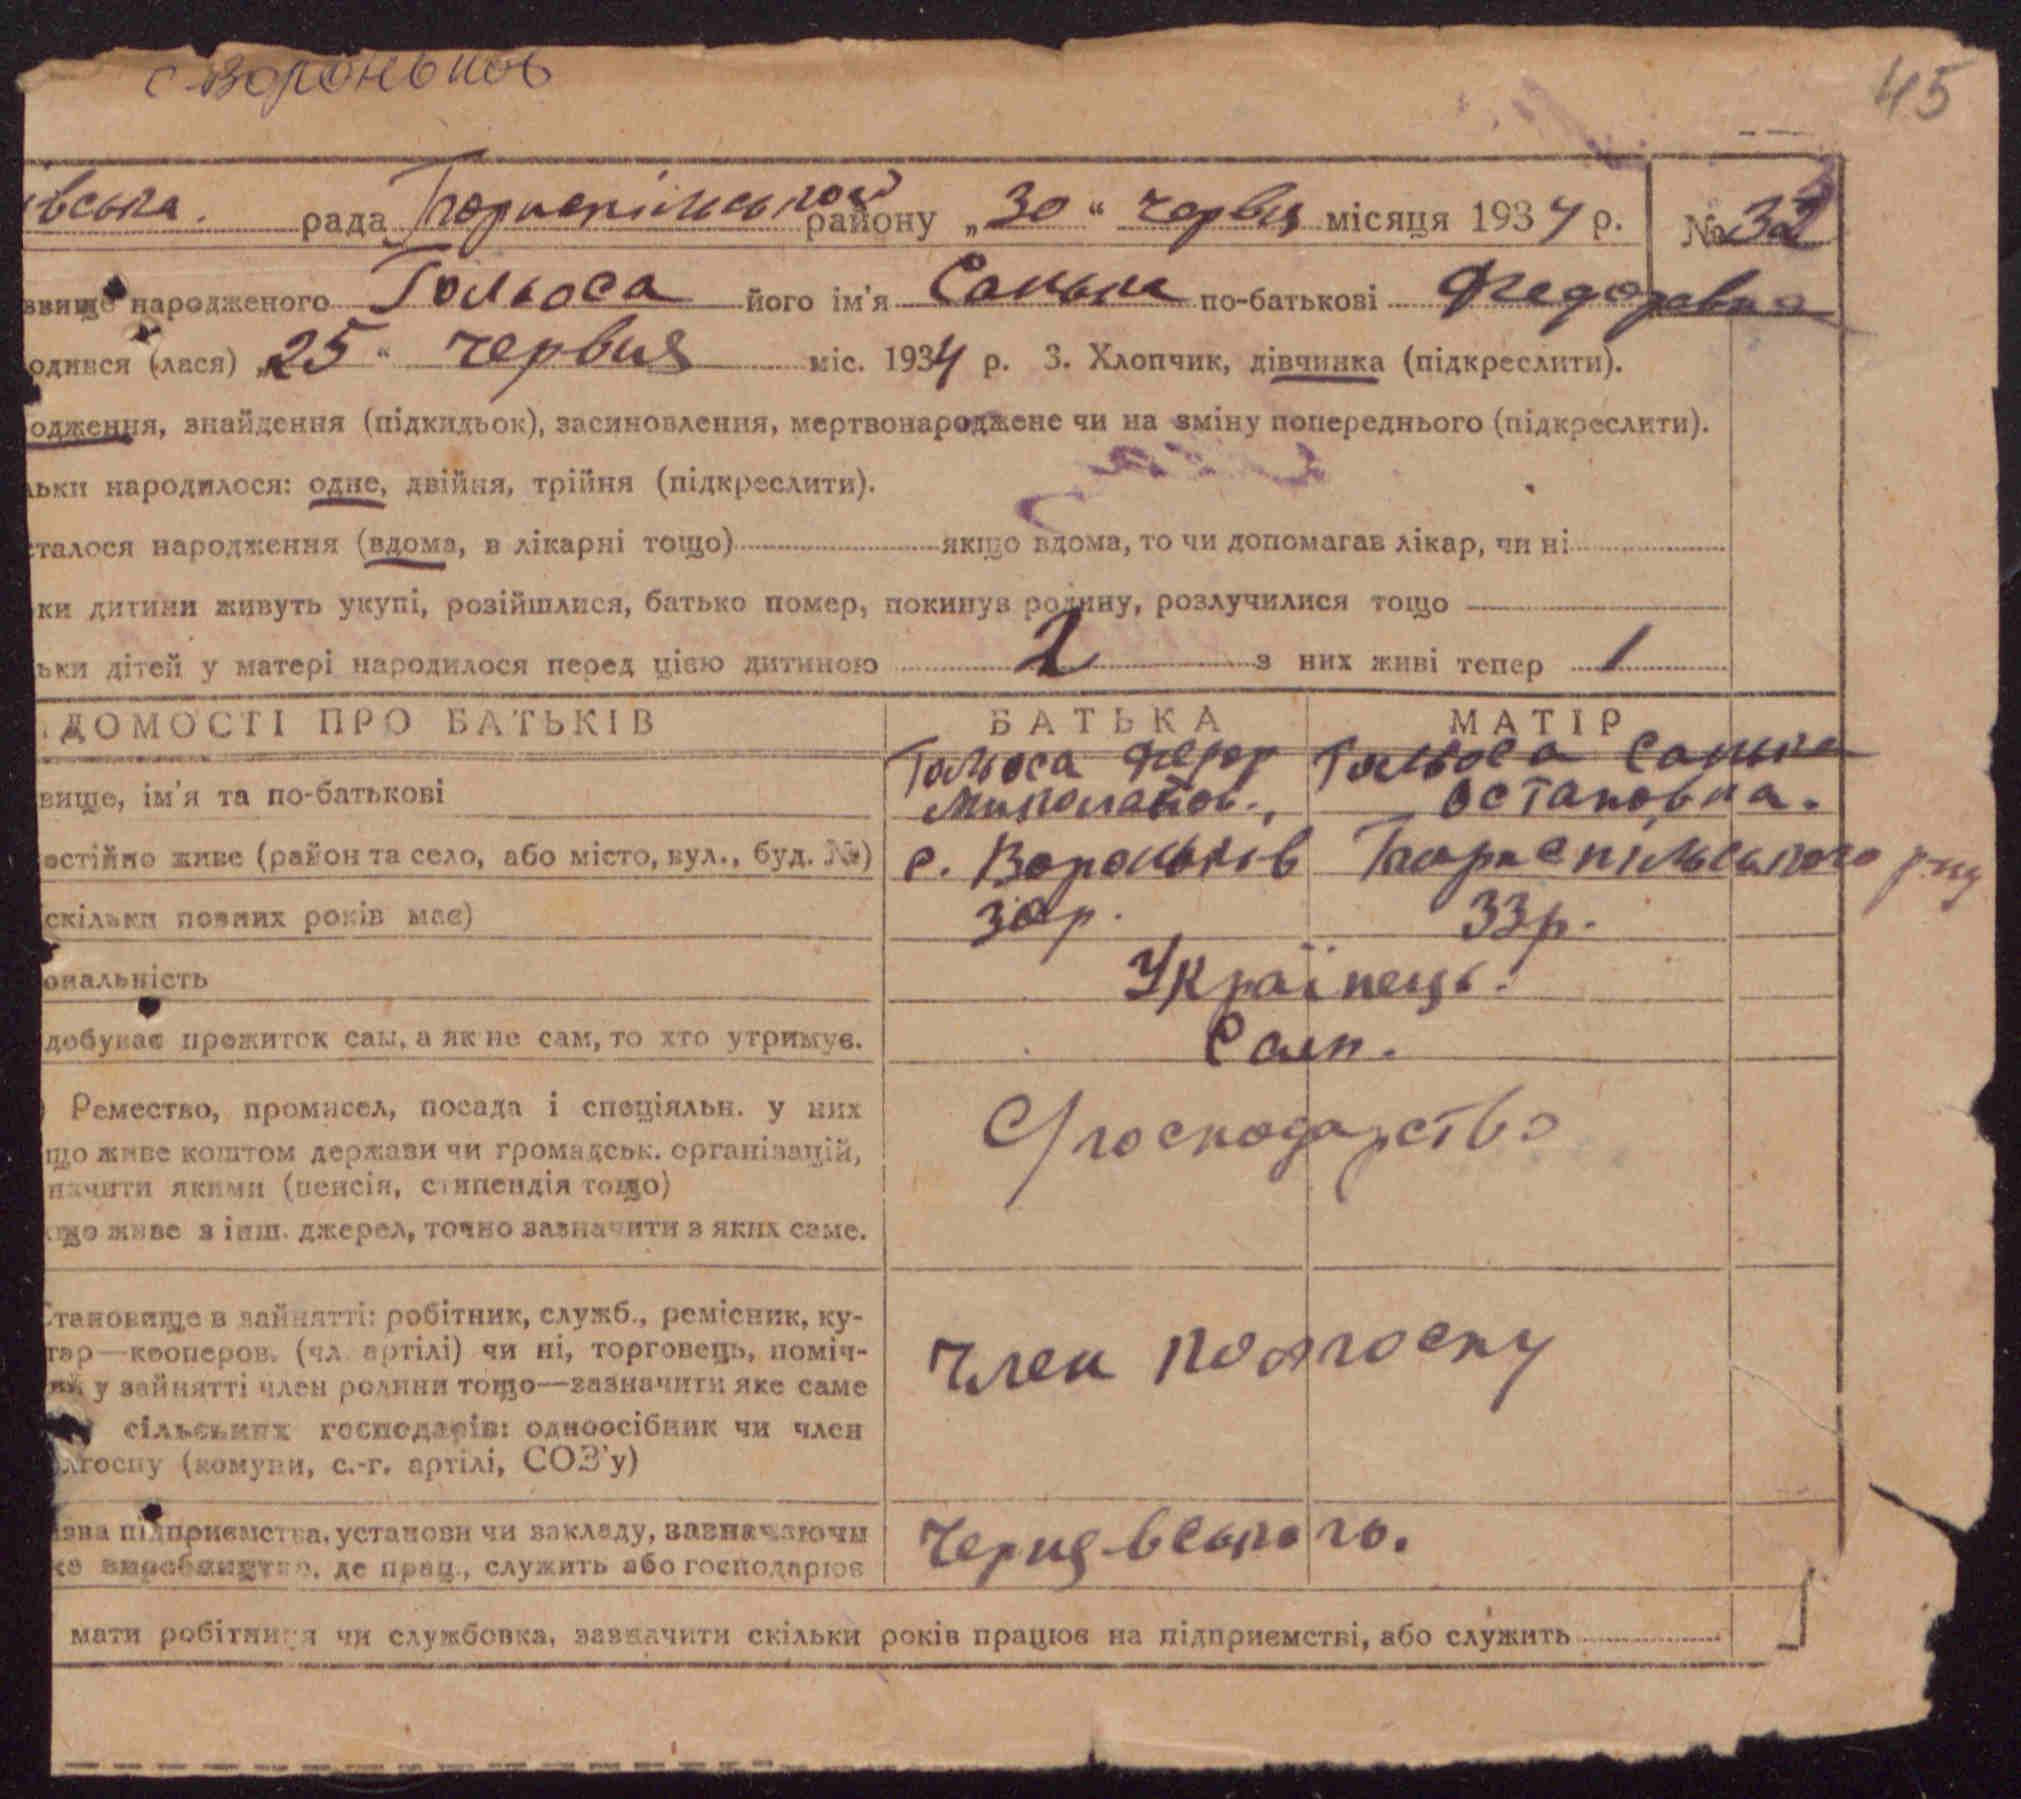 с Вороньков
45
івська. рада Бориспільского району „30“ червця місяця 1934 р. № 32
звище народженого Гольоса його ім'я Санька по-батькові Федоровна
одився (лася) „25“ червця міс. 1934 р. 3. Хлопчик, дівчинка (підкреслити).
одження, знайдення (підкидьок), засиновлення, мертвонароджене чи на зміну попереднього (підкреслити).
льки народилося: одне, двійня, трійня (підкреслити).
сталося народження (вдома, в лікарні тощо) якщо вдома, то чи допомагав лікар, чи ні
ки дитини живуть укупі, розійшлися, батько помер, покинув родину, розлучилися тощо
ьки дітей у матері народилося перед цією дитиною 2 з них живі тепер 1
ІДОМОСТІ ПРО БАТЬКІВ БАТЬКА МАТІР
вище, ім'я та по-батькові Гольоса Федор Миколайов., Гольоса Санька Остаповна.
остійно живе (район та село, або місто, вул., буд. №) с. Вороньків Бориспільського р-ну
скільки повних років має) 30р. 33р.
ональність Українець.
добуває прожиток сам, а як не сам, то хто утримує. Сам.
Ремество, промисел, посада і спеціяльн. у них С/господарство
що живе коштом держави чи громадськ. організацій,
начити якими (пенсія, стипендія тощо)
кщо живе з інш. джерел, точно зазначити з яких саме.
Становище в зайнятті: робітник, служб., ремісник, ку-
тар—кооперов. (чл. артілі) чи ні, торговець, поміч- Член колгоспу
ий у зайнятті член родини тощо—зазначити яке саме
сільських господарів: одноосібник чи член
олгоспу (комуни, с.-г. артілі, СОЗ'у)
азва підприємства, установи чи закладу, зазначаючи Черняввського.
ке виробництво, де прац., служить або господарює
мати робітниця чи службовка, зазначити скільки років працює на підприємстві, або служить